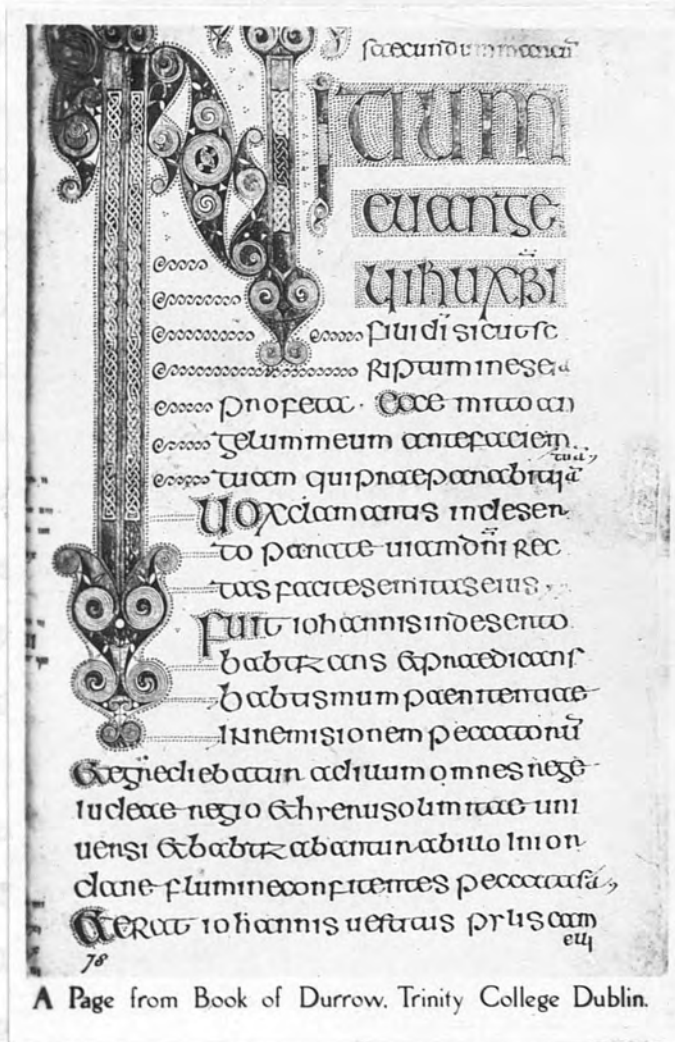 secundum marcum
INITIUM
EUANGE
LII IHU XPI
FILI DI SICUT SC
RIPTUM IN ESEIA
profeta · Ecce mitto an
gelum meum ante faciem
tuam qui praeparabit uiã tuã,
Uox clamantis in deser
to parate uiam dñi rec
tas facite semitas eius,
Fuit iohannis in deserto
babtizans & praedicans
babtismum paenitentiae
in remisionem peccatorũ
& egrediebatur ad illum omnes rege
iudeae regio & hierusolimitae uni
uersi & babtizabantur ab illo in ior
dane flumine confitentes peccata sã,
Et erat iohannis uestitus pylis cam
elli
78
A Page from Book of Durrow. Trinity College Dublin.